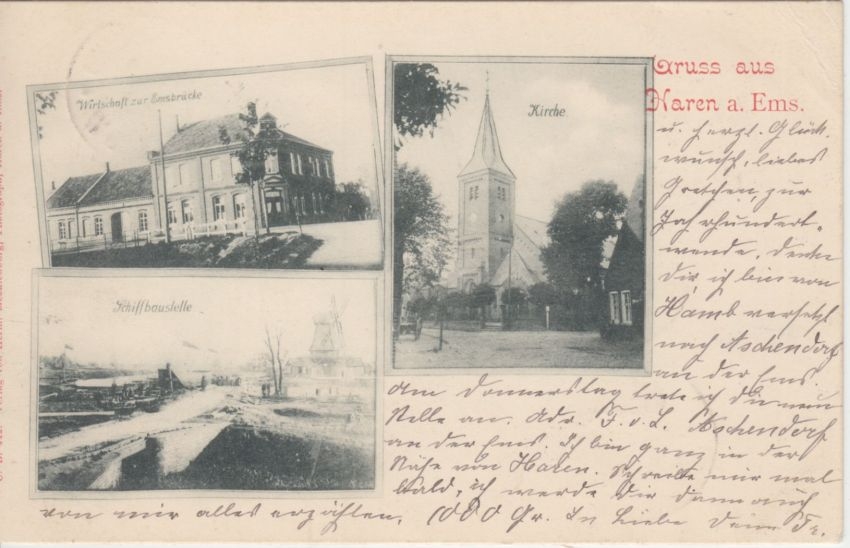 Wirtschaft zur Emsbrücke
Kirche
Schiffbaustelle
Gruss aus
Haren a. Ems.
u. herzl. Glück
wunsch, liebes
Gretchen, zur
Jahrhundert-
wende. Denke
Dir, ich bin von
Hamb versetzt
nach Aschendorf
an der Ems.
Am Donnerstag trete ich die neue
Stelle an. Adr. F. v. L. Aschendorf
an der Ems. Ich bin ganz in der
Nähe von Haren. Schreibe mir mal
bald, ich werde Dir dann auch
von mir alles erzählen. 1000 Gr. In Liebe Deine Fr.